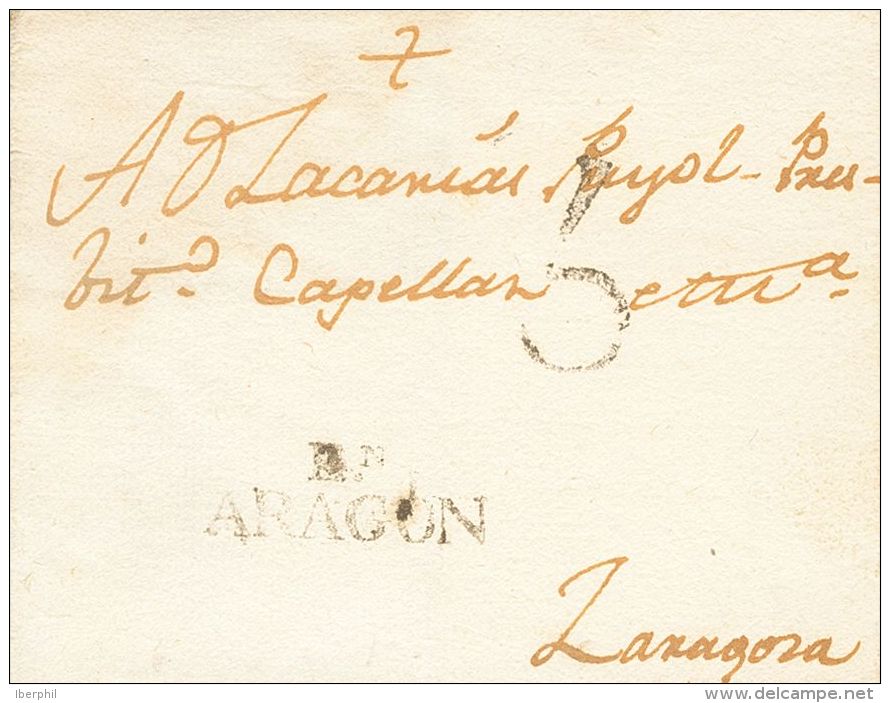 A D Zacarias Puyol - Pres-
bit.o Capellan etta.
5
En.
ARAGON
Zaragoza
Iberphil
delcampe.net